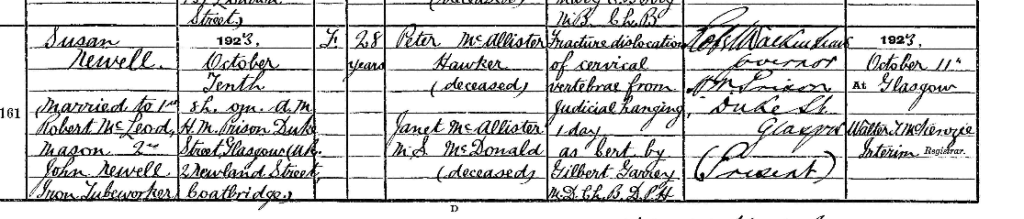 Street,
(deceased)
M.B. Ch.B
161
Susan
Newell.
(Married to 1st
Robert McLeod,
Mason 2nd
John Newell
Iron Tubeworker)
1923,
October
Tenth
8h. om. a.m
H.M. Prison Duke
Street, Glasgow (Uk.
2 Newland Street,
Coatbridge,)
F.
28
years
Peter McAllister
Hawker
(deceased)
Janet McAllister
M.S. McDonald
(deceased)
Fracture dislocation
of cervical
vertebrae from
Judicial hanging,
1 day
as Cert. by
Gilbert Garrey
M.D. Ch.B. D.P.H
Governor
H.M Prison
Duke St.
Glasgow
(Present)
1923,
October 11th
At Glasgow
Walter J McKenzie
Interim Registrar.
D